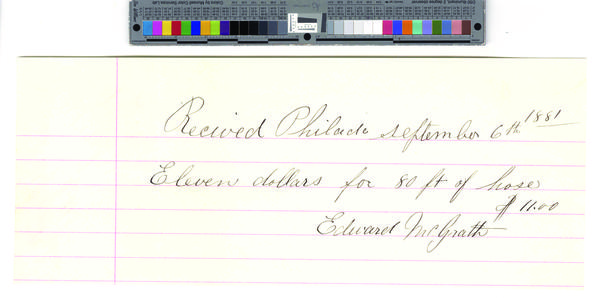 Recived Philada September 6th 1881
Eleven dollars for 80 ft of hose
$11.00
Edward McGrath